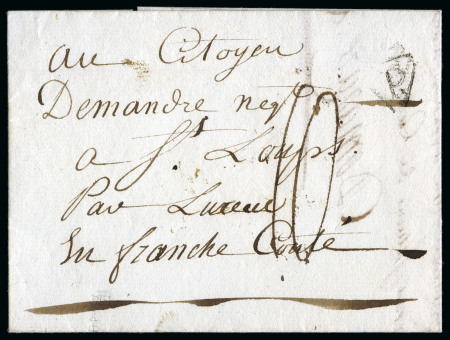 au Citoyen
Demandre neg.t
a St Loups.
Par Luxeuc
En franche Conté
10